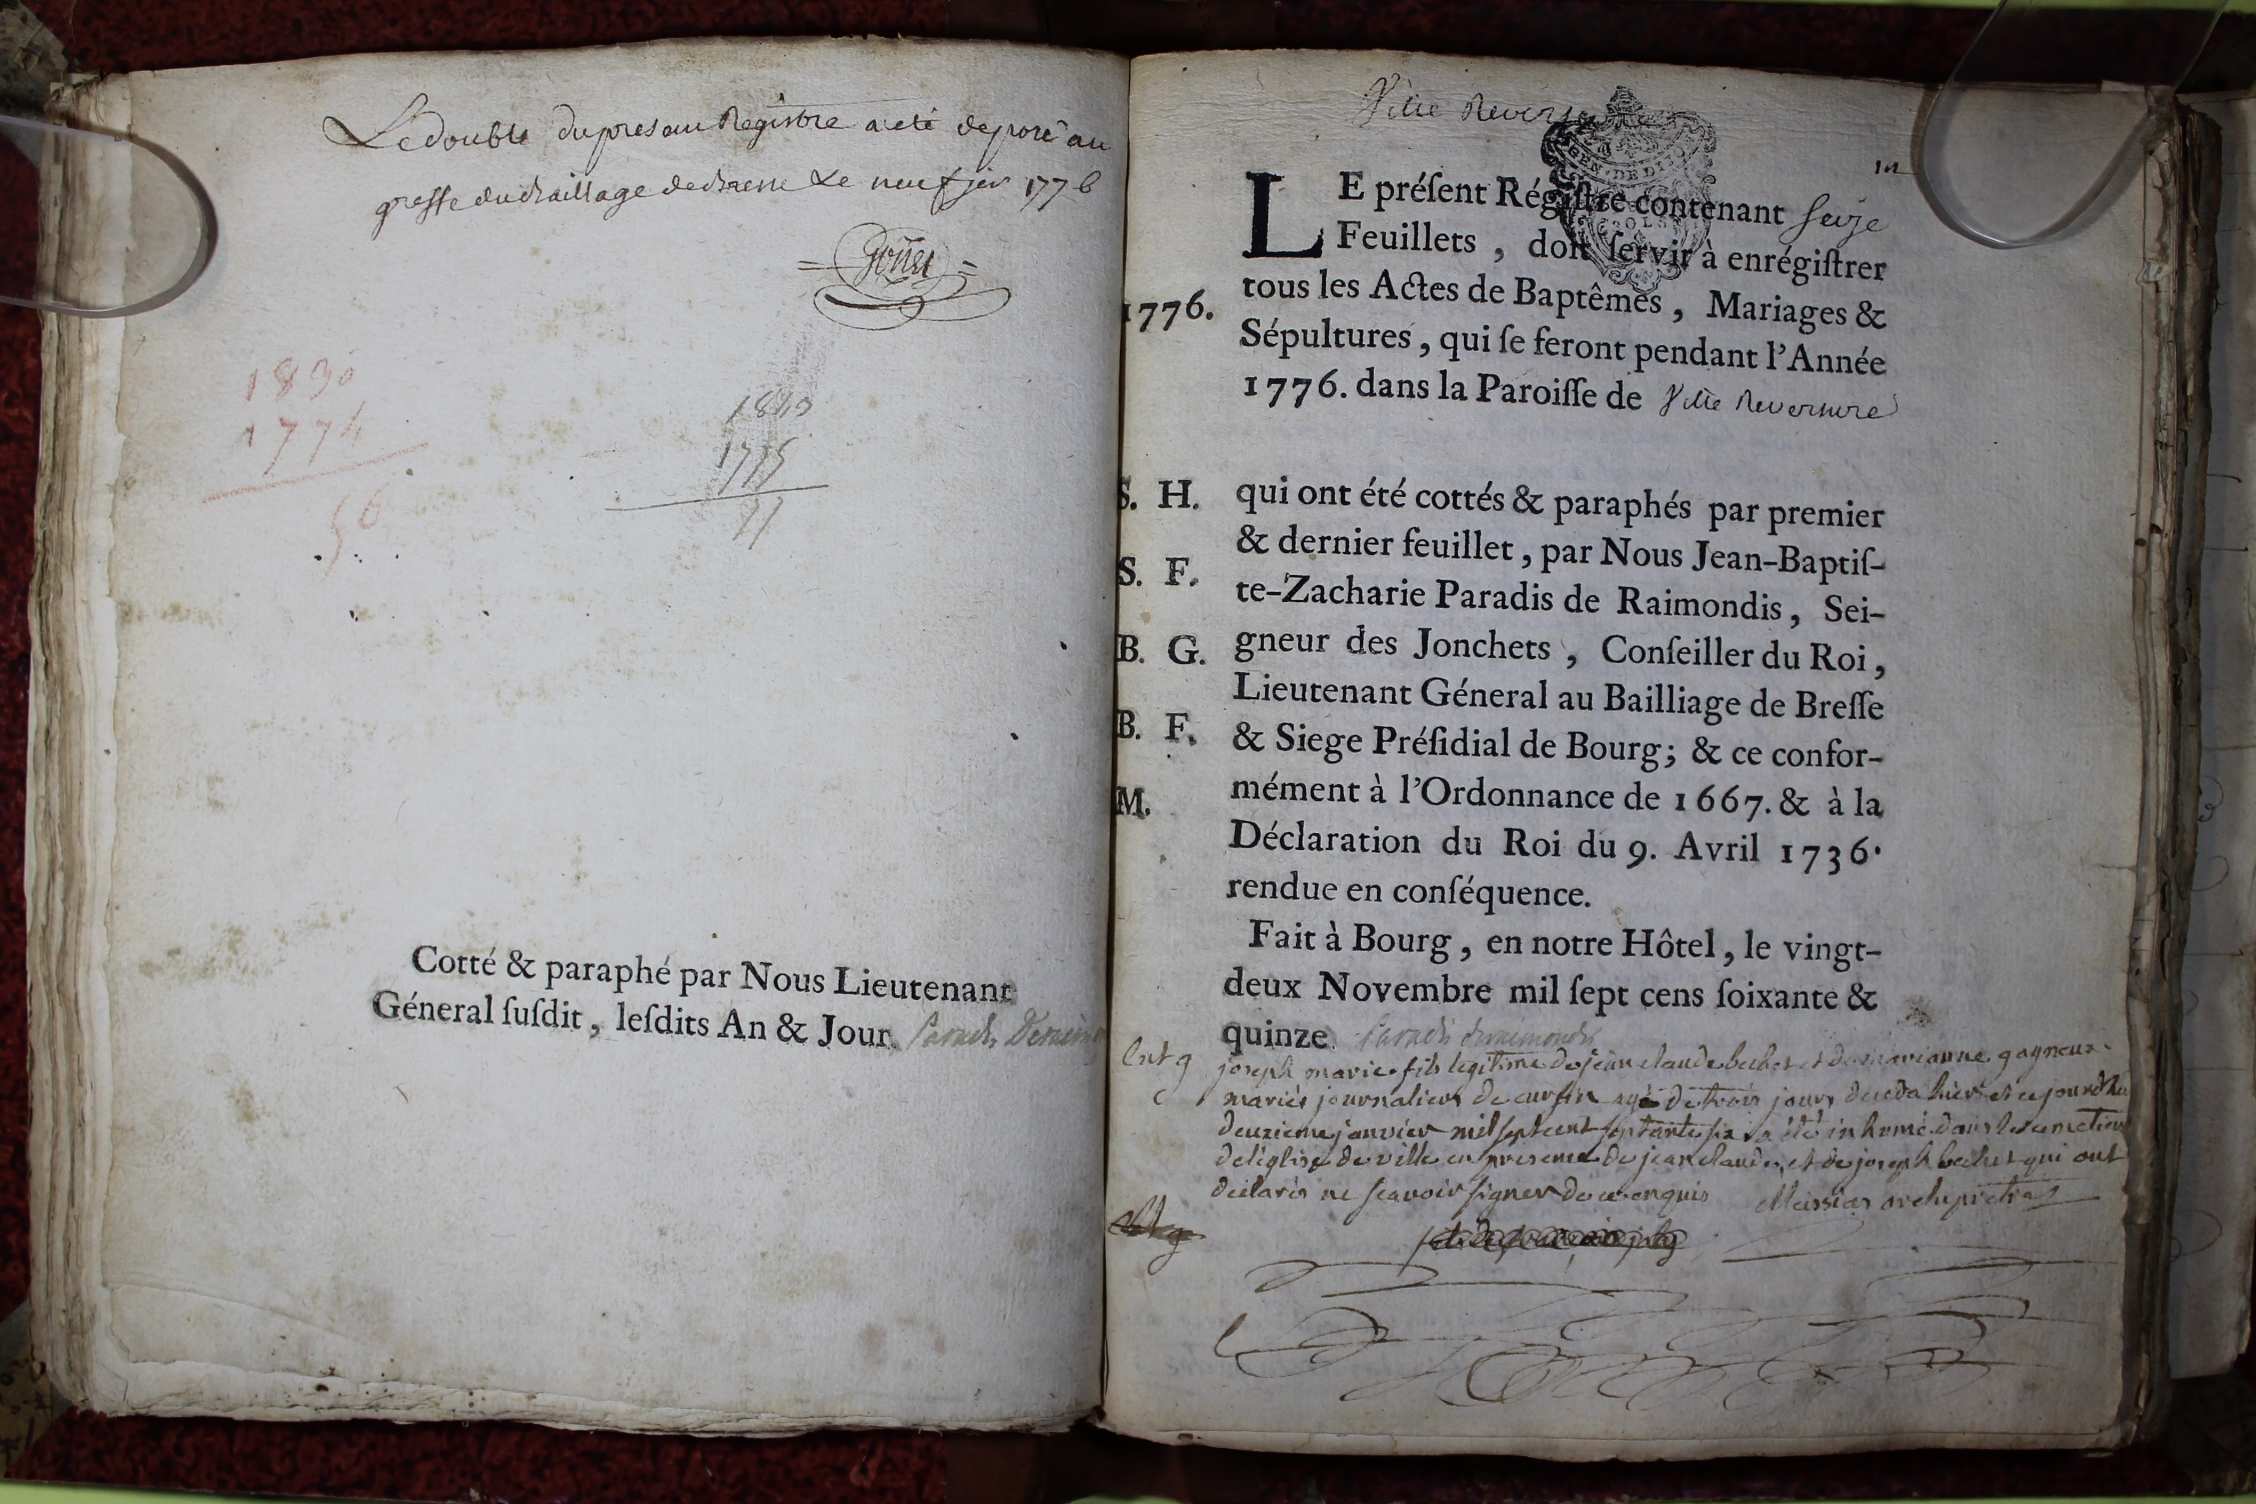 Le double du present Registre a eté deposé au
greffe du Bailliage de Bresse Le neuf jer 1776
1830
1774
56
1830
1775
Cotté & paraphé par Nous Lieutenant
Géneral ſuſdit, leſdits An & Jour.
Ville Reversure
GEN. DE DI
LE préſent Régiſtre contenant seize
Feuillets, doit ſervir à enrégiſtrer
tous les Actes de Baptêmes, Mariages &
1776.
Sépultures, qui ſe feront pendant l'Année
1776. dans la Paroiſſe de Ville Reversure
S. H.
qui ont été cottés & paraphés par premier
& dernier feuillet, par Nous Jean-Baptiſ-
S. F.
te-Zacharie Paradis de Raimondis, Sei-
B. G.
gneur des Jonchets, Conſeiller du Roi,
Lieutenant Géneral au Bailliage de Breſſe
B. F.
& Siege Préſidial de Bourg; & ce confor-
M.
mément à l'Ordonnance de 1667. & à la
Déclaration du Roi du 9. Avril 1736.
rendue en conſéquence.
Fait à Bourg, en notre Hôtel, le vingt-
deux Novembre mil ſept cens ſoixante &
quinze Paradis deraimondis
joseph marie fils legitime de jean claude bechet et de marianne gagneux
mariés journaliers de cursin agé de trois jours deceda hier et cejourdhui
deuxieme janvier mil sept cent septante six a été inhumé dans le cemetiere
de l'eglise de ville en presence de jean claude, et de joseph bechet qui ont
declarés ne scavoir signer de ce enquis Messias archipretre